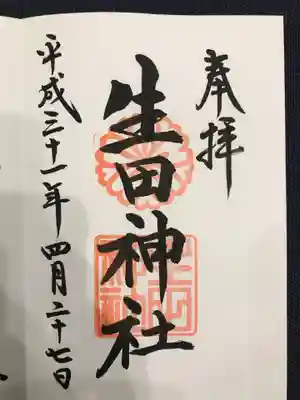 奉拝
生田神社
平成三十一年四月二十七日